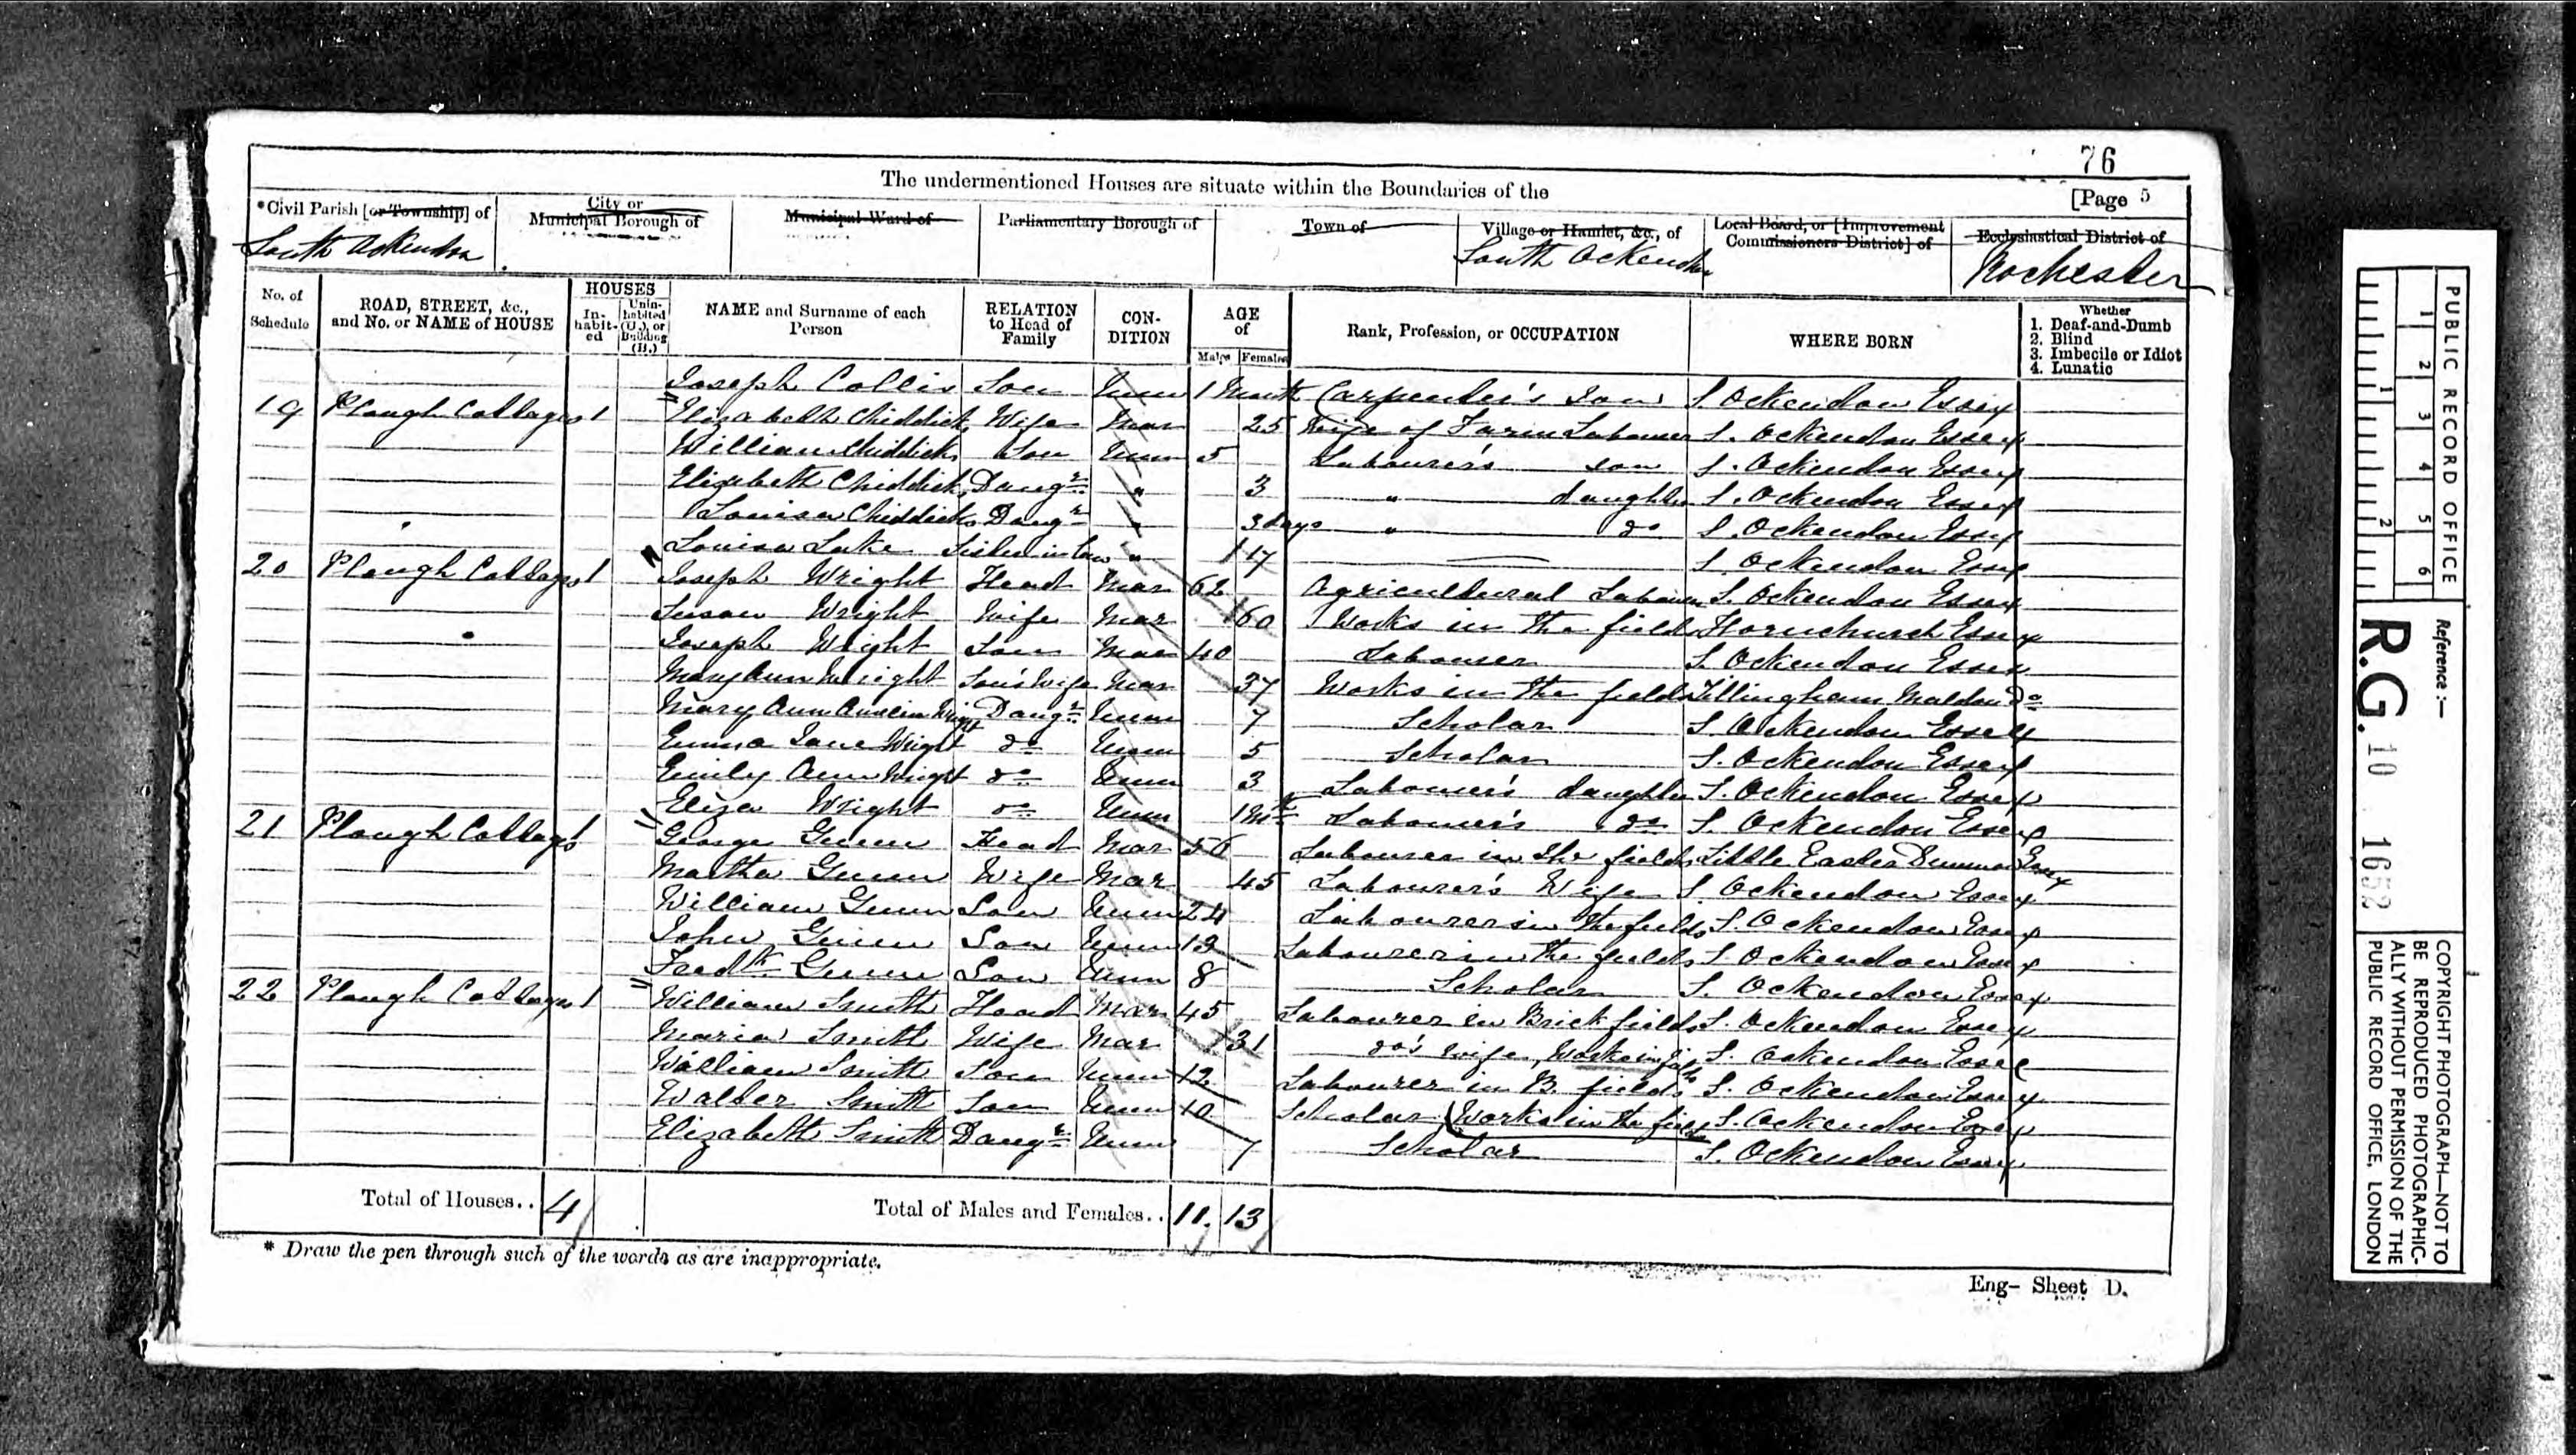 76
The undermentioned Houses are situate within the Boundaries of the
[Page 5
*Civil Parish [or Township] of
City or Municipal Borough of
Municipal Ward of
Parliamentary Borough of
Town of
Village or Hamlet, &c., of
Local Board, or [Improvement Commissioners District] of
Ecclesiastical District of
South Ockendon
South Ockendon
Rochester
No. of Schedule
ROAD, STREET, &c., and No. or NAME of HOUSE
HOUSES
In-habit-ed
Unin-habited (U.), or Building (B.)
NAME and Surname of each Person
RELATION to Head of Family
CON-DITION
AGE of
Males
Females
Rank, Profession, or OCCUPATION
WHERE BORN
Whether
1. Deaf-and-Dumb
2. Blind
3. Imbecile or Idiot
4. Lunatic
Joseph Collis Son Unm 1 Month Carpenter's Son S. Ockendon Essex
19 Plough Cottages 1 Elizabeth Chiddick Wife Mar 25 Wife of Farm Labourer S. Ockendon Essex
William Chiddick Son Unm 5 Labourer's son S. Ockendon Essex
Elizabeth Chiddick Daugr " 3 " daughter S. Ockendon Essex
Louisa Chiddick Daugr " 3 days " do S. Ockendon Essex
Louisa Lake Sister in law " 17 S. Ockendon Essex
20 Plough Cottages 1 Joseph Wright Head Mar 62 Agricultural Labourer S. Ockendon Essex
Susan Wright Wife Mar 60 Works in the fields Hornchurch Essex
Joseph Wright Son Mar 40 Labourer S. Ockendon Essex
Mary Ann Wright Son's Wife Mar 37 Works in the fields Tillingham Maldon do
Mary Ann Wright Daugr Unm 7 Scholar S. Ockendon Essex
Emma Jane Wright do Unm 5 Scholar S. Ockendon Essex
Emily Ann Wright do Unm 3 Labourer's daughter S. Ockendon Essex
Eliza Wright do Unm 1 Mth Labourer's do S. Ockendon Essex
21 Plough Cottages 1 George Head Mar 56 Labourer in the fields Little Easton Dunmow Essex
Martha Wife Mar 45 Labourer's Wife S. Ockendon Essex
William Son Unm 24 Labourer in the fields S. Ockendon Essex
John Son Unm 13 Labourer in the fields S. Ockendon Essex
Fredk Son Unm 8 Scholar S. Ockendon Essex
22 Plough Cottages 1 William Smith Head Mar 45 Labourer in Brick fields S. Ockendon Essex
Maria Smith Wife Mar 31 do's wife, Works in S. Ockendon Essex
William Smith Son Unm 12 Labourer in B. fields S. Ockendon Essex
Walter Smith Son Unm 10 Scholar (Works in the field S. Ockendon Essex
Elizabeth Smith Daugr Unm 7 Scholar S. Ockendon Essex
Total of Houses.. 4
Total of Males and Females.. 11. 13
* Draw the pen through such of the words as are inappropriate.
Eng- Sheet D.
PUBLIC RECORD OFFICE
1 2 3 4 5 6
1 2
Reference :—
R.G. 10 1652
COPYRIGHT PHOTOGRAPH—NOT TO
BE REPRODUCED PHOTOGRAPHIC-
ALLY WITHOUT PERMISSION OF THE
PUBLIC RECORD OFFICE, LONDON